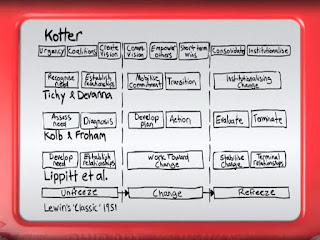 Kotter
Urgency Coalitions Create Vision Comms. Vision Empower others Short term wins Consolidate Institutionalise
Recognise need Establish relationships Mobilise commitment Transition Institutionalising Change
Tichy & Devanna
Assess need Diagnosis Develop plan Action Evaluate Terminate
Kolb & Froham
Develop need Establish relationships Work Toward Change Stabilise Change Terminal relationships
Lippitt et al.
Unfreeze Change Refreeze
Lewin's 'Classic' 1951